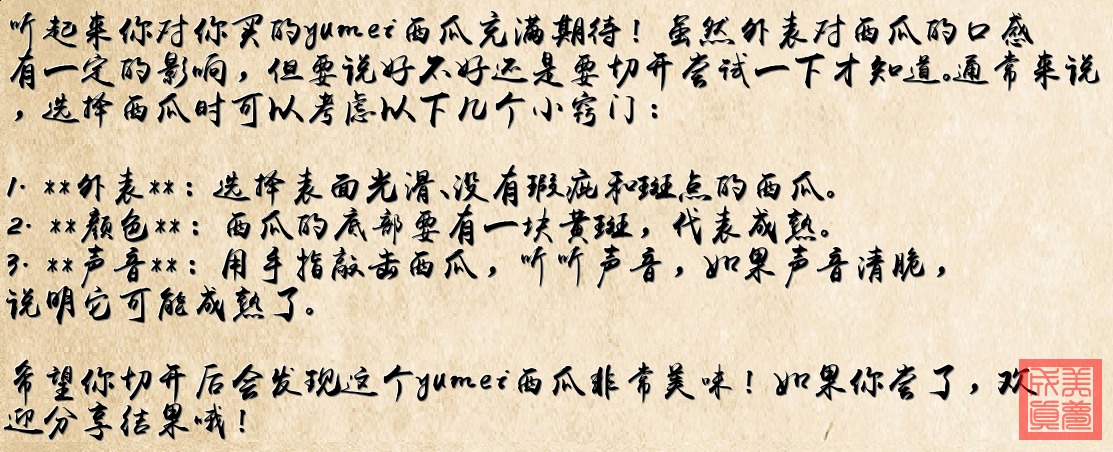 听起来你对你买的yumei西瓜充满期待！虽然外表对西瓜的口感
有一定的影响，但要说好不好还是要切开尝试一下才知道。通常来说
，选择西瓜时可以考虑以下几个小窍门：
1. **外表**：选择表面光滑、没有瑕疵和斑点的西瓜。
2. **颜色**：西瓜的底部要有一块黄斑，代表成熟。
3. **声音**：用手指敲击西瓜，听听声音，如果声音清脆，
说明它可能成熟了。
希望你切开后会发现这个yumei西瓜非常美味！如果你尝了，欢
迎分享结果哦！
美梦成真